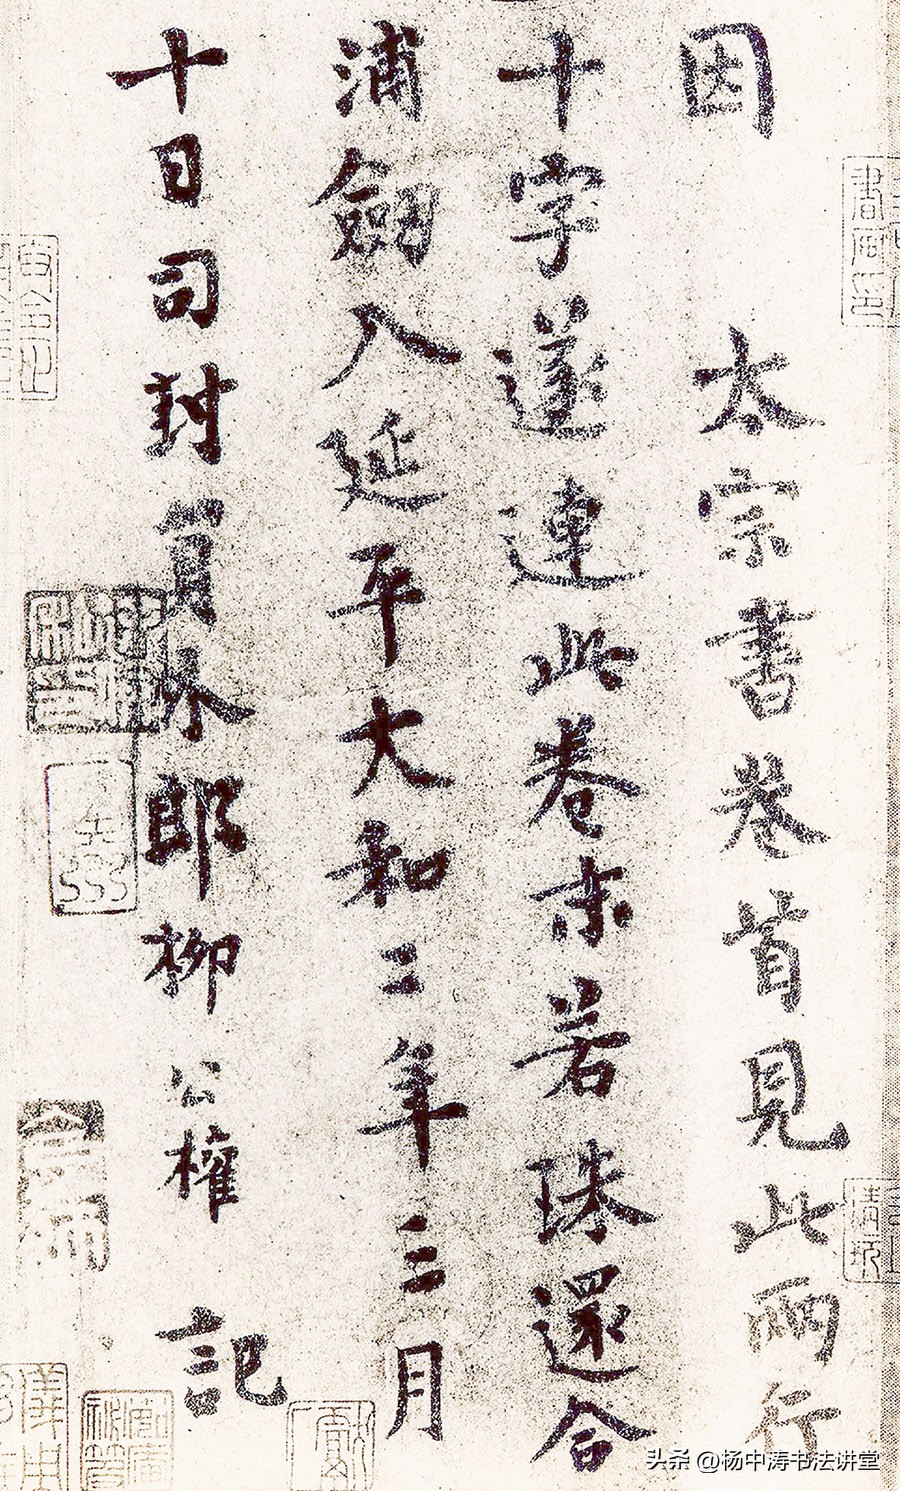 因 太宗書卷首見此兩行
十字遂連此卷末若珠還合
浦劒入延平大和二年三月
十日司封員外郎柳公權 記
头条 @杨中涛书法讲堂